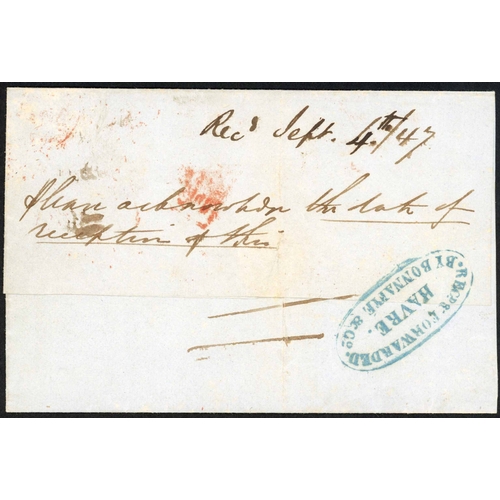 Rec'd Sept. 4th/47
Please acknowledge the date of
reception of this
FORWARDED
BY BONNAFFE & Co.
HAVRE.